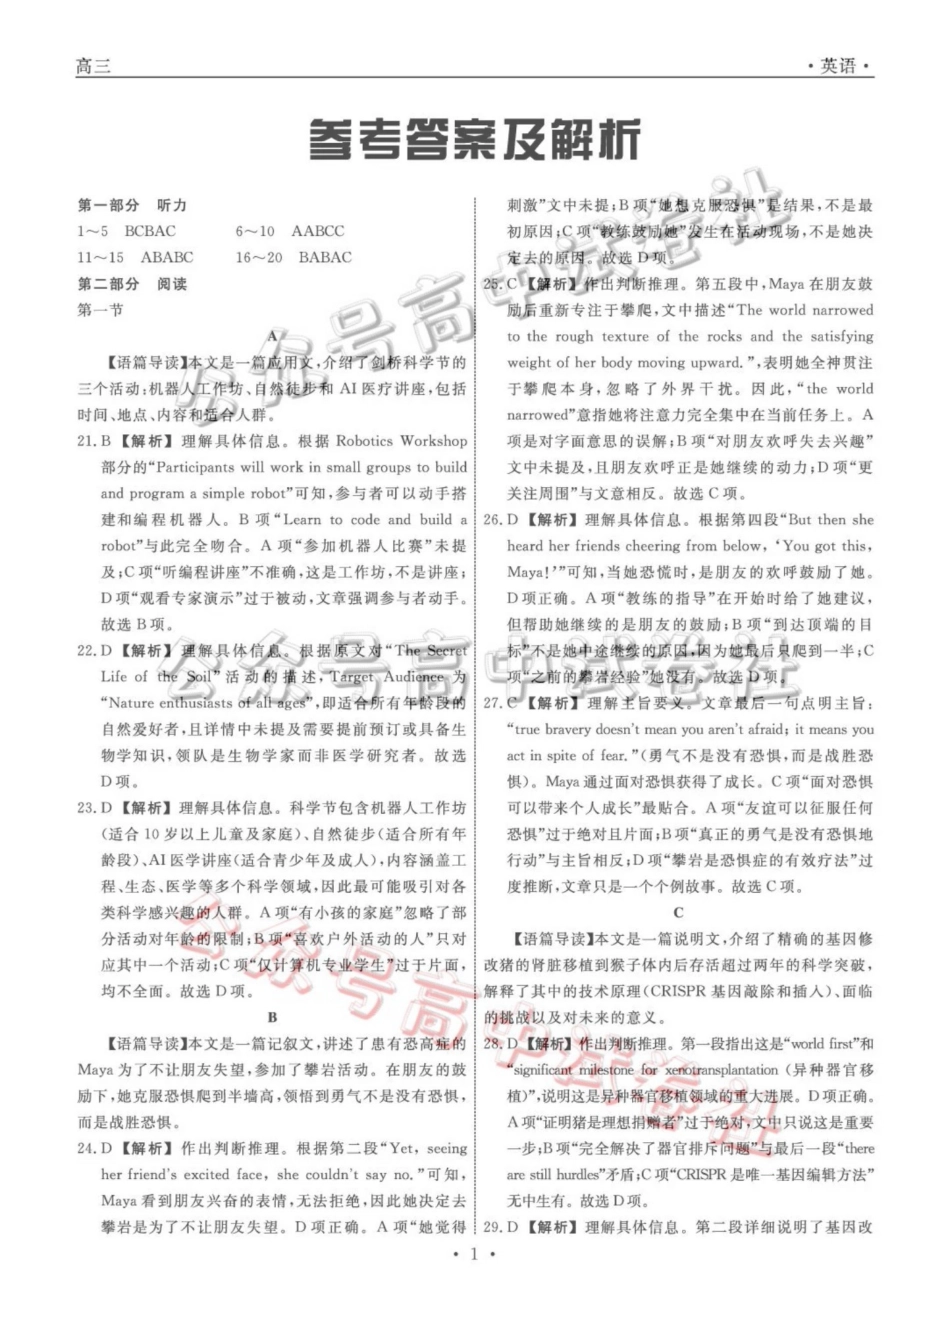 高三
·英语·
参考答案及解析
第一部分 听力
1～5 BCBAC 6～10 AABCC
11～15 ABABC 16～20 BABAC
第二部分 阅读
第一节
A
【语篇导读】本文是一篇应用文,介绍了剑桥科学节的
三个活动:机器人工作坊、自然徒步和 AI 医疗讲座,包括
时间、地点、内容和适合人群。
21. B 【解析】理解具体信息。根据 Robotics Workshop
部分的“Participants will work in small groups to build
and program a simple robot”可知,参与者可以动手搭
建和编程机器人。B 项“Learn to code and build a
robot”与此完全吻合。A 项“参加机器人比赛”未提
及;C项“听编程讲座”不准确,这是工作坊,不是讲座;
D项“观看专家演示”过于被动,文章强调参与者动手。
故选 B项。
22. D 【解析】理解具体信息。根据原文对“The Secret
Life of the Soil”活动的描述,Target Audience 为
“Nature enthusiasts of all ages”,即适合所有年龄段的
自然爱好者,且详情中未提及需要提前预订或具备生
物学知识,领队是生物学家而非医学研究者。故选
D项。
23. D 【解析】理解具体信息。科学节包含机器人工作坊
(适合 10 岁以上儿童及家庭)、自然徒步(适合所有年
龄段)、AI医学讲座(适合青少年及成人),内容涵盖工
程、生态、医学等多个科学领域,因此最可能吸引对各
类科学感兴趣的人群。A 项“有小孩的家庭”忽略了部
分活动对年龄的限制;B项“喜欢户外活动的人”只对
应其中一个活动;C项“仅计算机专业学生”过于片面,
均不全面。故选 D项。
B
【语篇导读】本文是一篇记叙文,讲述了患有恐高症的
Maya 为了不让朋友失望,参加了攀岩活动。在朋友的鼓
励下,她克服恐惧爬到半墙高,领悟到勇气不是没有恐惧,
而是战胜恐惧。
24. D 【解析】作出判断推理。根据第二段“Yet, seeing
her friend's excited face, she couldn't say no.”可知,
Maya 看到朋友兴奋的表情,无法拒绝,因此她决定去
攀岩是为了不让朋友失望。D 项正确。A 项“她觉得
刺激”文中未提;B 项“她想克服恐惧”是结果,不是最
初原因;C项“教练鼓励她”发生在活动现场,不是她决
定去的原因。故选 D项。
25. C 【解析】作出判断推理。第五段中,Maya 在朋友鼓
励后重新专注于攀爬,文中描述“The world narrowed
to the rough texture of the rocks and the satisfying
weight of her body moving upward.”,表明她全神贯注
于攀爬本身,忽略了外界干扰。因此,“the world
narrowed”意指她将注意力完全集中在当前任务上。A
项是对字面意思的误解;B项“对朋友欢呼失去兴趣”
文中未提及,且朋友欢呼正是她继续的动力;D项“更
关注周围”与文意相反。故选 C 项。
26. D 【解析】理解具体信息。根据第四段“But then she
heard her friends cheering from below, ‘You got this,
Maya!’”可知,当她恐慌时,是朋友的欢呼鼓励了她。
D 项正确。A 项“教练的指导”在开始时给了她建议,
但帮助她继续的是朋友的鼓励;B 项“到达顶端的目
标”不是她中途继续的原因,因为她最后只爬到一半;C
项“之前的攀岩经验”她没有。故选 D项。
27. C 【解析】理解主旨要义。文章最后一句点明主旨:
“true bravery doesn't mean you aren't afraid; it means you
act in spite of fear.”(勇气不是没有恐惧,而是战胜恐
惧)。Maya 通过面对恐惧获得了成长。C 项“面对恐惧
可以带来个人成长”最贴合。A 项“友谊可以征服任何
恐惧”过于绝对且片面;B项“真正的勇气是没有恐惧地
行动”与主旨相反;D项“攀岩是恐惧症的有效疗法”过
度推断,文章只是一个个例故事。故选 C 项。
C
【语篇导读】本文是一篇说明文,介绍了精确的基因修
改猪的肾脏移植到猴子体内后存活超过两年的科学突破,
解释了其中的技术原理(CRISPR 基因敲除和插入)、面临
的挑战以及对未来的意义。
28. D 【解析】作出判断推理。第一段指出这是“world first”和
“significant milestone for xenotransplantation (异种器官移
植)”,说明这是异种器官移植领域的重大进展。D 项正确。
A 项“证明猪是理想捐赠者”过于绝对,文中只说这是重要
一步;B 项“完全解决了器官排斥问题”与最后一段“there
are still hurdles”矛盾;C 项“CRISPR 是唯一基因编辑方法”
无中生有。故选 D 项。
29. D 【解析】理解具体信息。第二段详细说明了基因改
· 1 ·
公众号高中试卷社
公众号高中试卷社
公众号高中试卷社